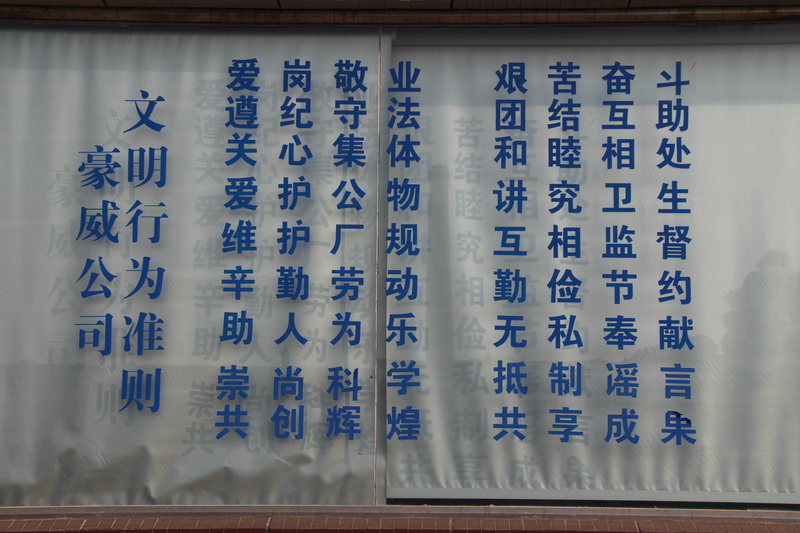 豪威公司
文明行为准则
爱岗敬业 艰苦奋斗
遵纪守法 团结互助
关心集体 和睦相处
爱护公物 讲究卫生
维护厂规 互相监督
辛勤劳动 勤俭节约
助人为乐 无私奉献
崇尚科学 抵制谣言
共创辉煌 共享成果